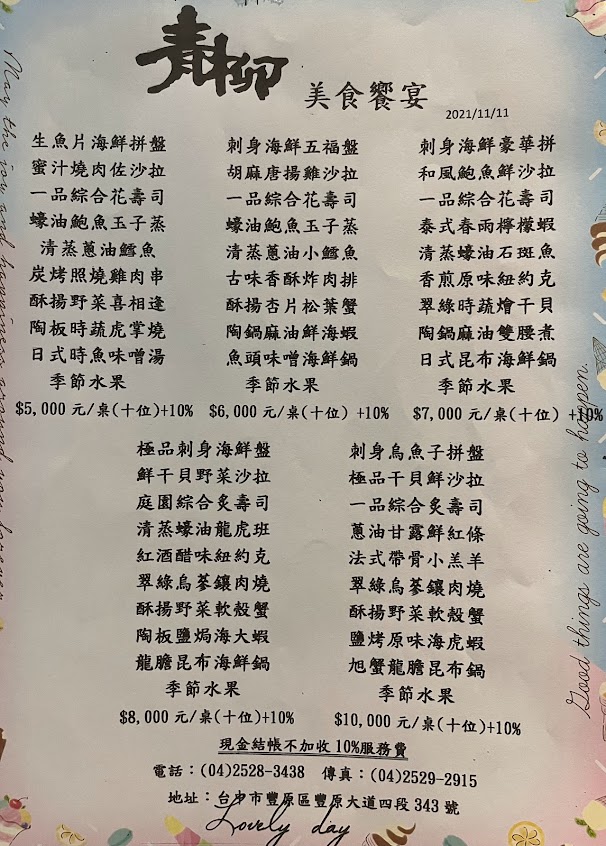 青柳
美食饗宴
2021/11/11
生魚片海鮮拼盤
蜜汁燒肉佐沙拉
一品綜合花壽司
蠔油鮑魚玉子蒸
清蒸蔥油鱈魚
炭烤照燒雞肉串
酥揚野菜喜相逢
陶板時蔬虎掌燒
日式時魚味噌湯
季節水果
$5,000 元/桌(十位)+10%
刺身海鮮五福盤
胡麻唐揚雞沙拉
一品綜合花壽司
蠔油鮑魚玉子蒸
清蒸蔥油小鱈魚
古味香酥炸肉排
酥揚杏片松葉蟹
陶鍋麻油鮮海蝦
魚頭味噌海鮮鍋
季節水果
$6,000 元/桌(十位) +10%
刺身海鮮豪華拼
和風鮑魚鮮沙拉
一品綜合花壽司
泰式春雨檸檬蝦
清蒸蠔油石斑魚
香煎原味紐約克
翠綠時蔬燴干貝
陶鍋麻油雙腰煮
日式昆布海鮮鍋
季節水果
$7,000 元/桌(十位) +10%
極品刺身海鮮盤
鮮干貝野菜沙拉
庭園綜合炙壽司
清蒸蠔油龍虎班
紅酒醋味紐約克
翠綠烏蔘鑲肉燒
酥揚野菜軟殼蟹
陶板鹽焗海大蝦
龍膽昆布海鮮鍋
季節水果
$8,000 元/桌(十位)+10%
刺身烏魚子拼盤
極品干貝鮮沙拉
一品綜合炙壽司
蔥油甘露鮮紅條
法式帶骨小羔羊
翠綠烏蔘鑲肉燒
酥揚野菜軟殼蟹
鹽烤原味海虎蝦
旭蟹龍膽昆布鍋
季節水果
$10,000 元/桌(十位)+10%
現金結帳不加收 10%服務費
電話：(04)2528-3438 傳真：(04)2529-2915
地址：台中市豐原區豐原大道四段 343 號
Lovely day
May the joy and happiness around you forever
Good things are going to happen.